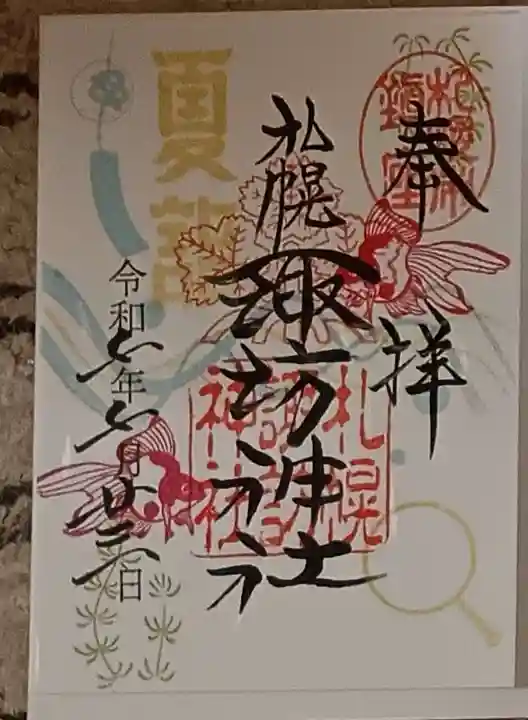 奉拝
札幌
諏訪神社
令和六年六月廿三日
夏詣
鎮座
札幌
諏訪
神社